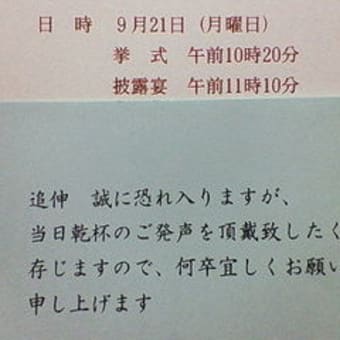 日　時　9月21日（月曜日）
挙　式　午前10時20分
披露宴　午前11時10分
追伸　誠に恐れ入りますが、
当日乾杯のご発声を頂戴致したく
存じますので、何卒宜しくお願い
申し上げます